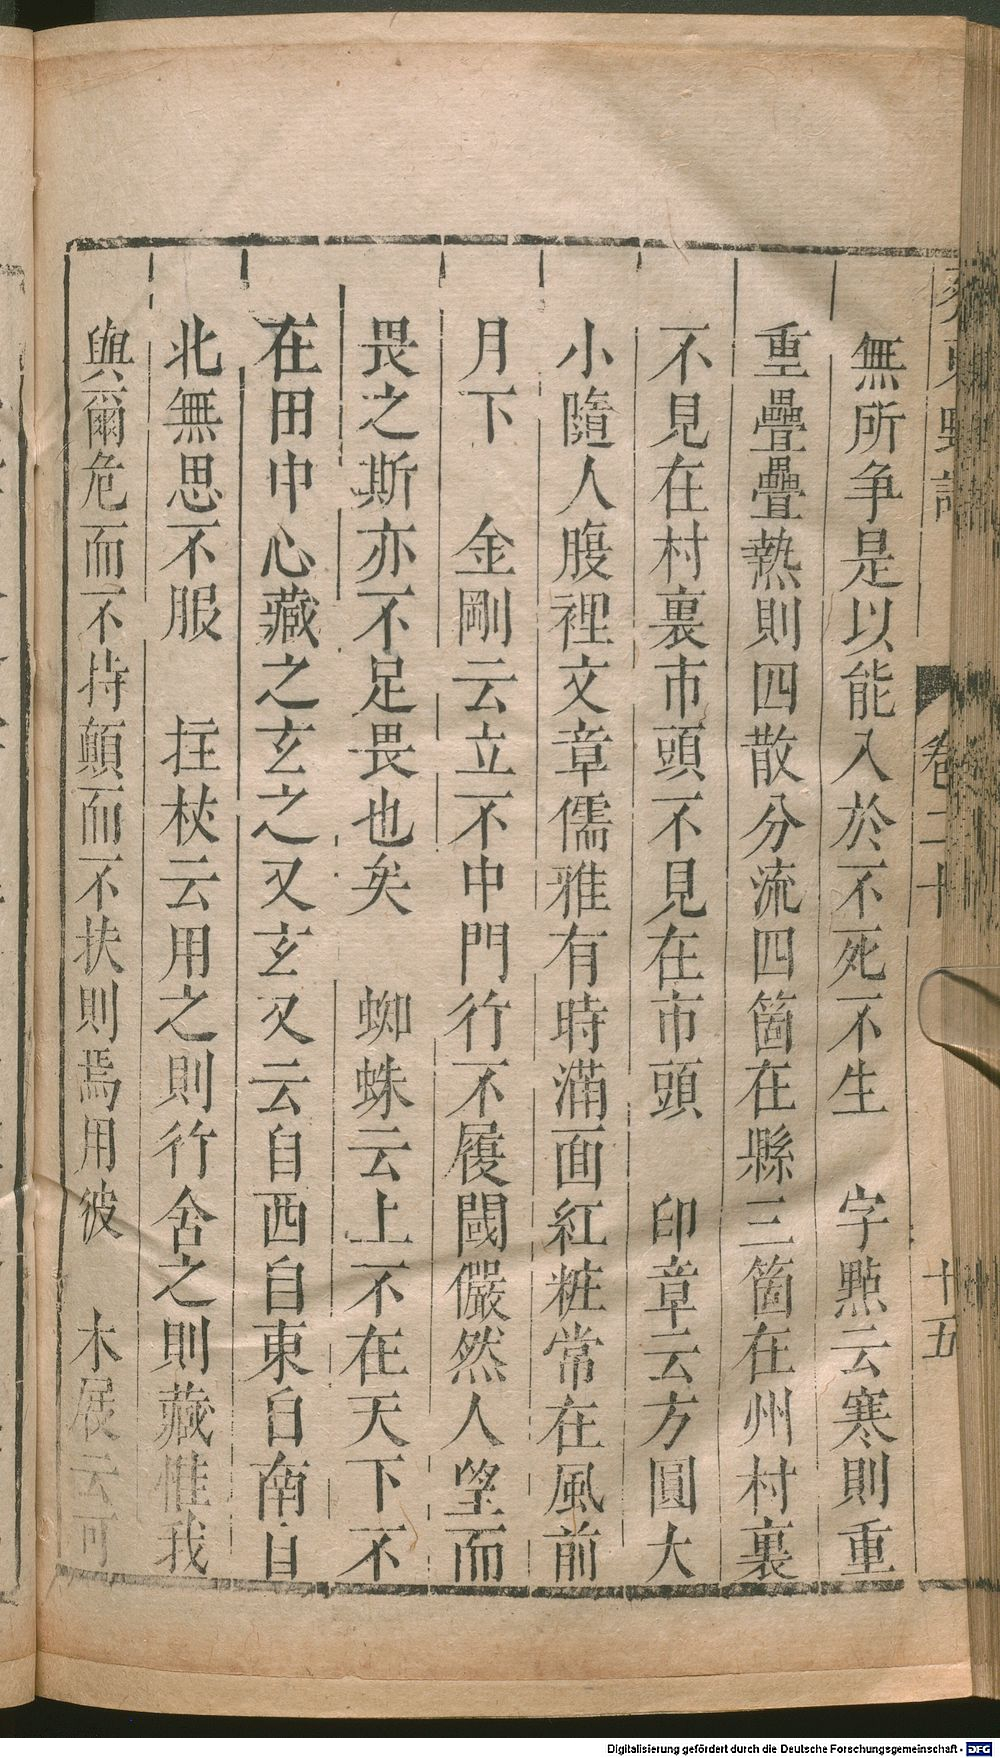 無所争是以能入於不死不生　字㸃云寒則重
重疊疊熱則四散分流四箇在縣三箇在州村裏
不見在村裏市頭不見在市頭　印章云方圓大
小隨人腹裡文章儒雅有時滿面紅粧常在風前
月下　金剛云立不中門行不履閾儼然人望而
畏之斯亦不足畏也矣　蜘蛛云上不在天下不
在田中心藏之玄之又玄又云自西自東自南自
北無思不服　拄杖云用之則行舍之則藏惟我
與爾危而不持顛而不扶則焉用彼　木屐云可
卷二十
十五
Digitalisierung gefördert durch die Deutsche Forschungsgemeinschaft - DFG